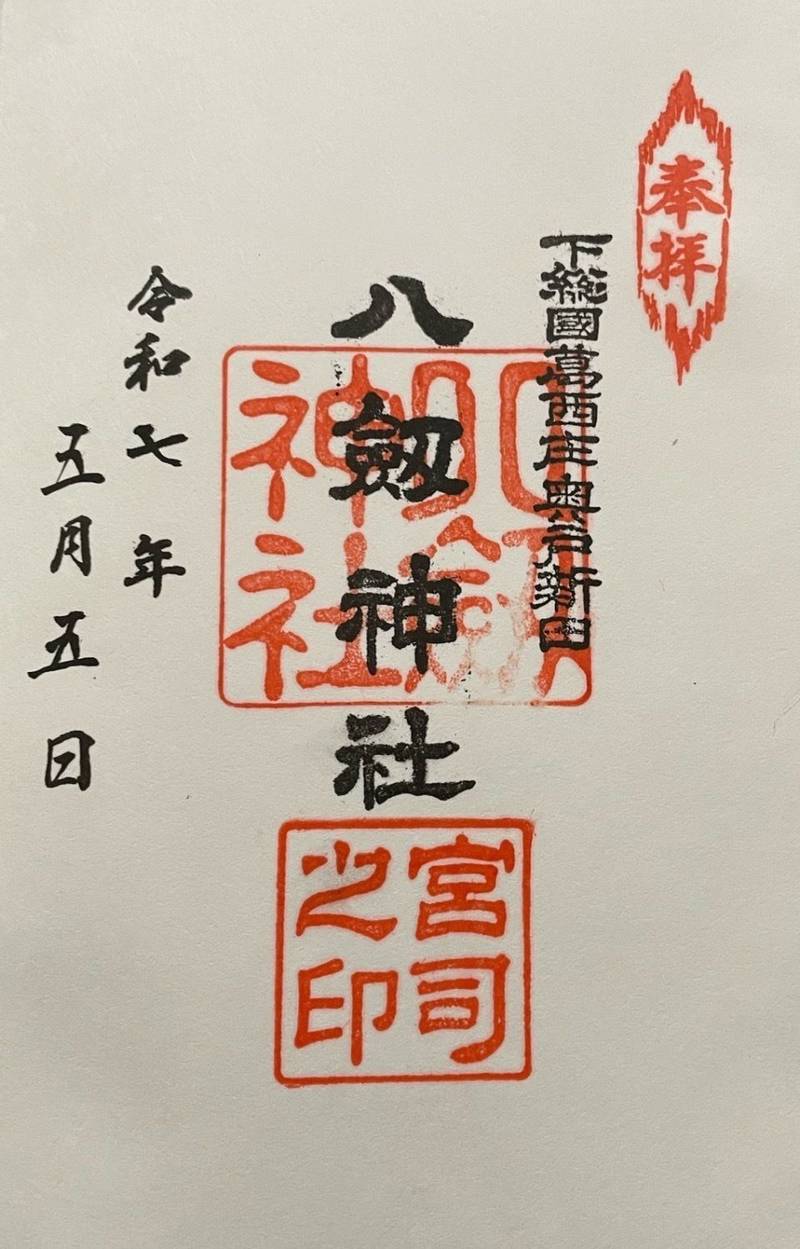 奉拝
下総國葛西庄奥戸新田
八劔神社
八劔
神社
宮司
之印
令和七年
五月五日